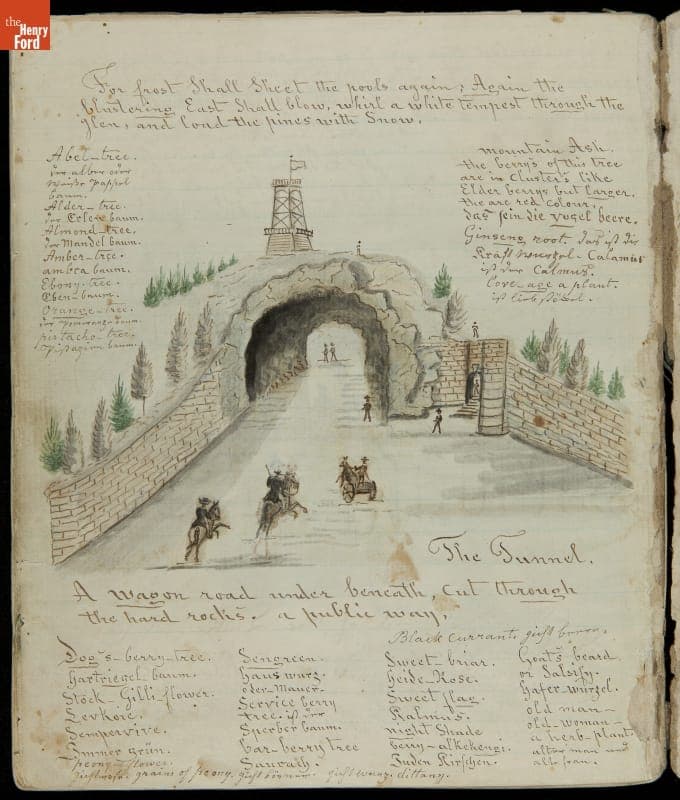 the
Henry
Ford
For frost Shall Sheet the pools again; Again the
blustering East Shall blow, whirl a white tempest through the
glen, and load the pines with Snow.
Abel-tree.
der alber oder
weiße pappel
baum.
Alder-tree.
der Erlen baum.
Almond-tree,
der Mandel baum.
Amber-tree.
ambra baum.
Ebony-tree.
Eben-baum.
Orange-tree.
der pomeranzo baum.
pistacho-tree.
Pistazien baum.
mountain Ash.
the berry's of this tree
are in Cluster's like
Elder berrys but larger.
the are red Colour,
das sein die vogel beere.
Ginseng root. das ist die
Kraft wurzel - Calamus
ist der Calmus.
Love age a plant.
ist lieb stöcel.
The Tunnel.
A wagon road under beneath, cut through
the hard rocks. a public way.
Black currant, gicht beeren.
Dog's-berry-tree.
Hartriegel baum.
Stock Gilli flower.
Levkoie.
Sempervive.
Immer grün.
peony-flower.
Sengreen.
haus wurz.
oder Mauer-
Service berry
tree. ist der
Sperber baum.
bar-berry tree
Saurach.
Sweet-briar.
Heide-Rose.
Sweet flag.
Kalmus.
night Shade
berry-alkekengi.
Juden Kirschen.
Goat's beard
or Salsify.
Hafer wurzel.
old man-
old-woman-
a herb-plant
alter man und
alt frau.
gichtrose. grains of peony, gicht körner. gicht wurz. dittany.